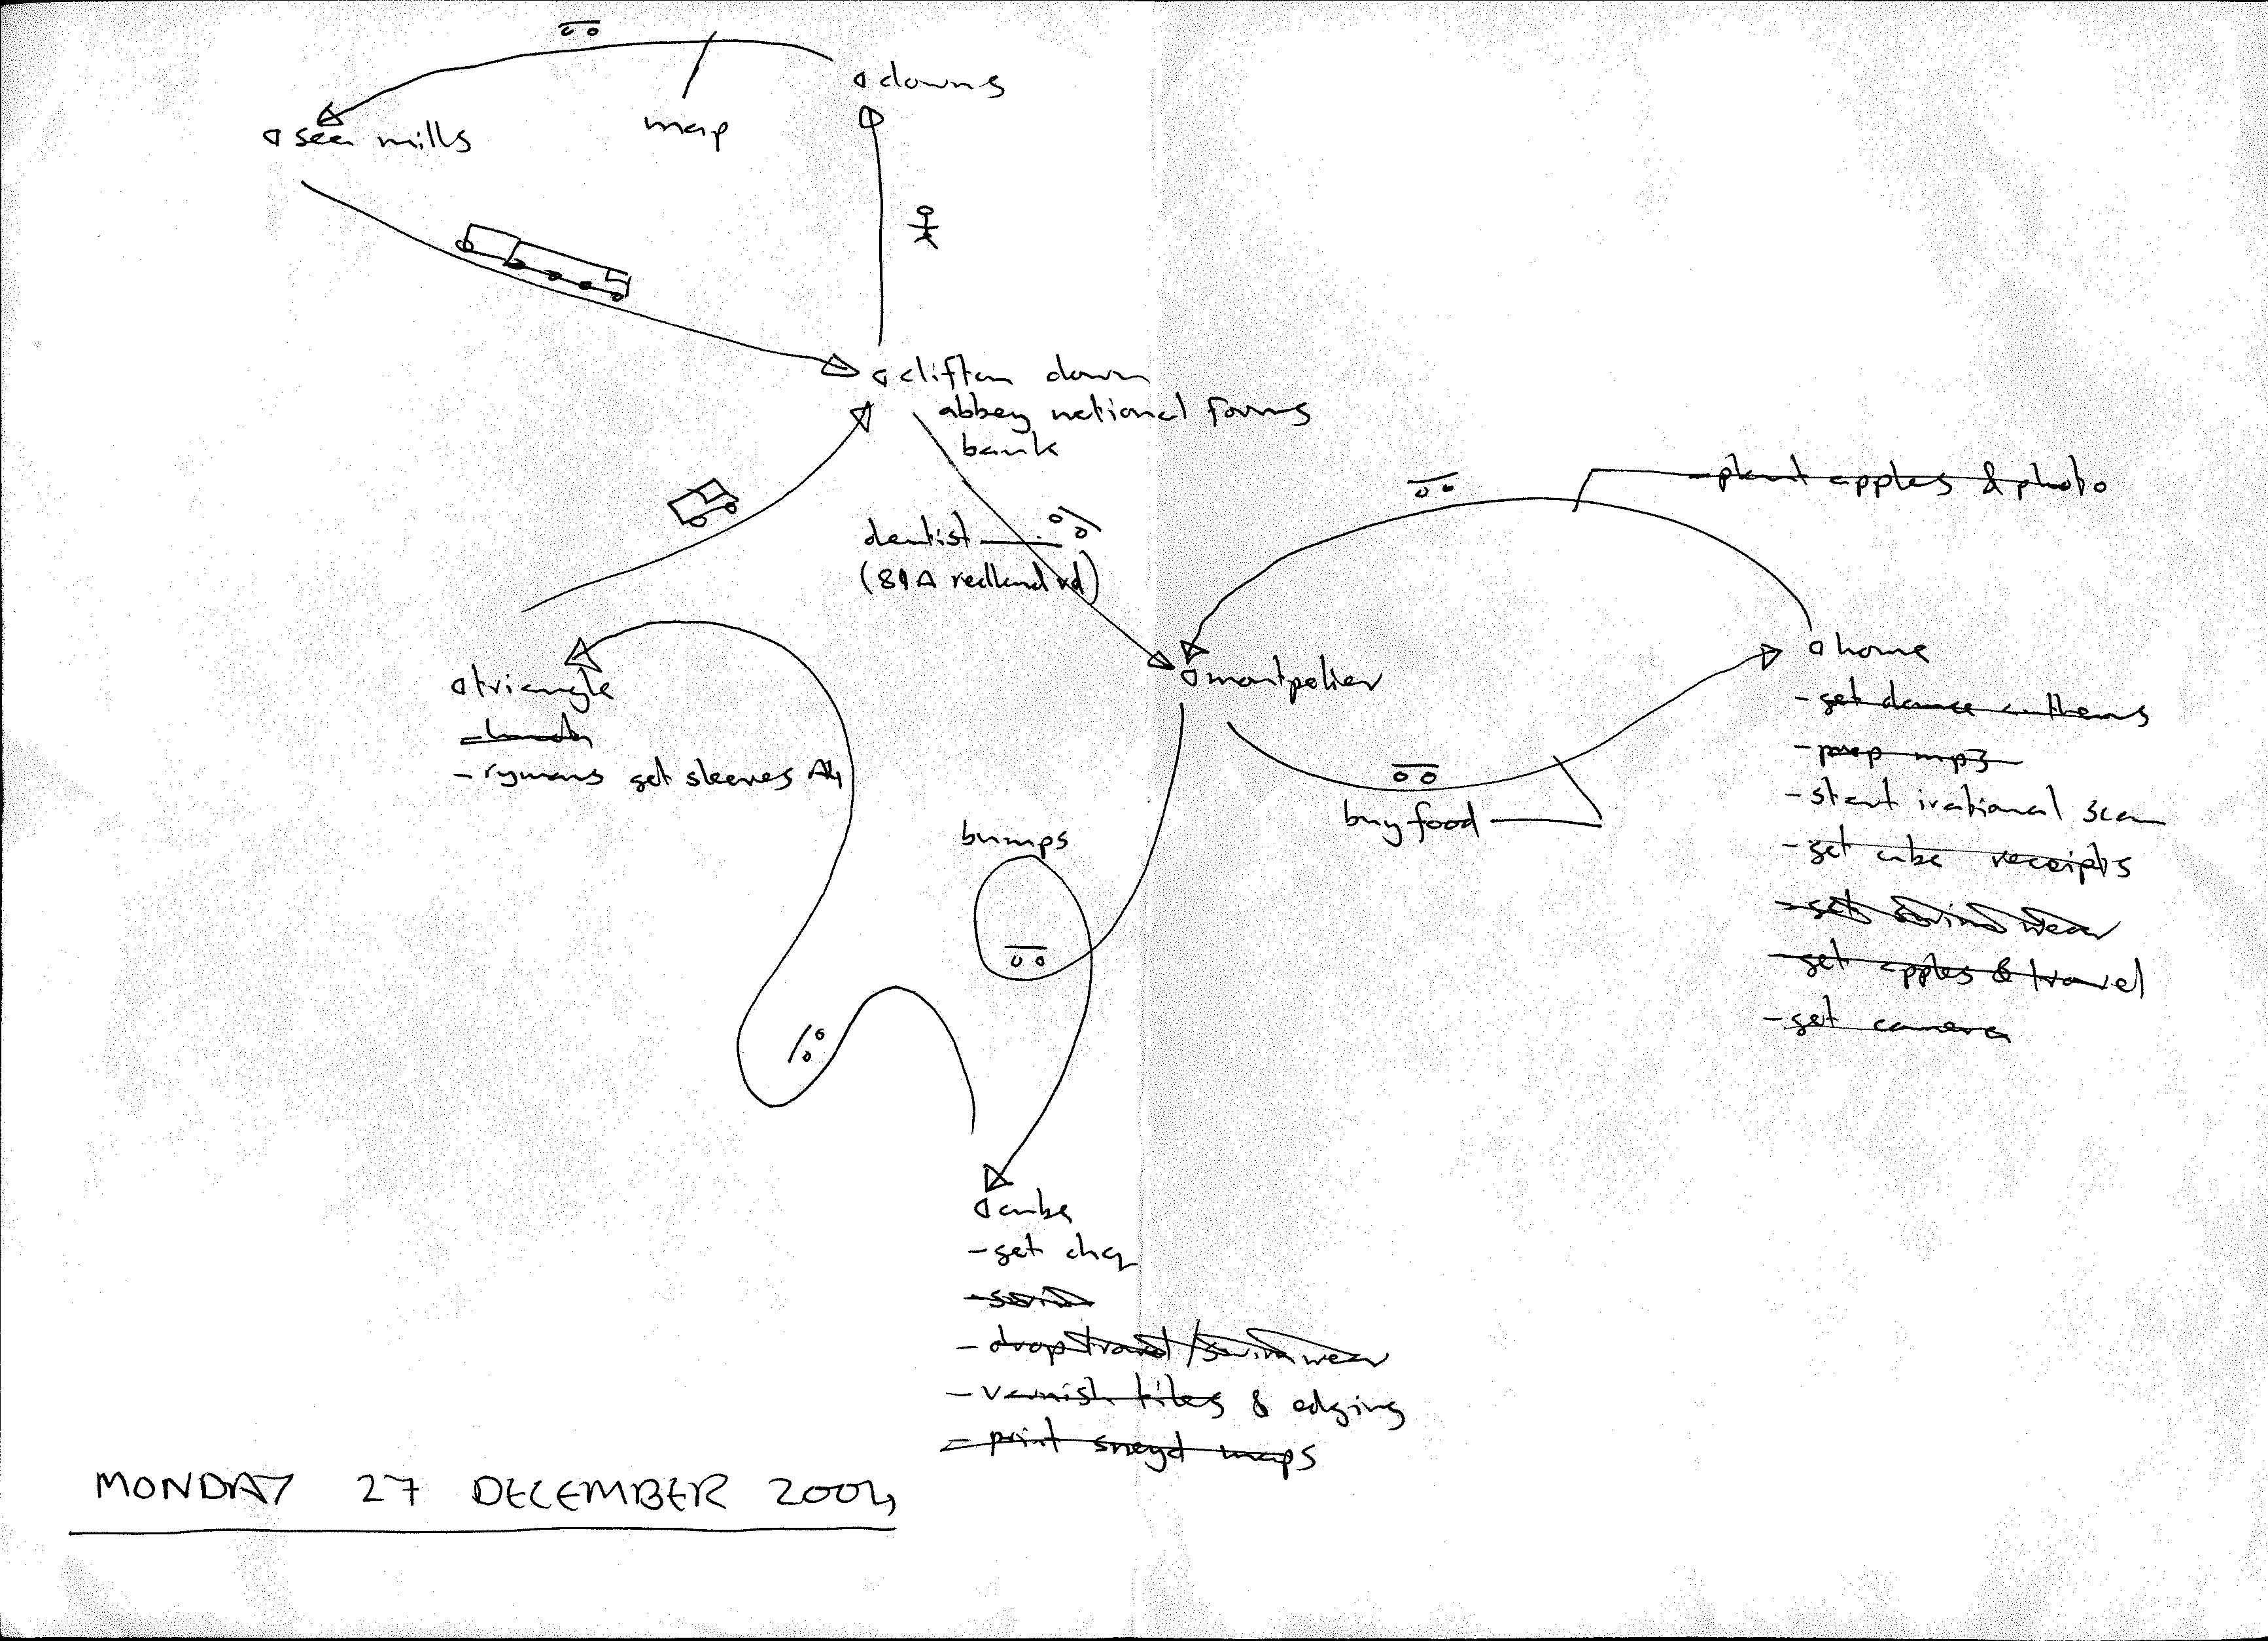 downs
map
sea mills
clifton down
abbey national forms
bank
plant apples & photo
dentist
(89A redland rd)
home
- get dance anthems
- prep mp3
- start irational scan
- get cube receipts
- get swimwear
- get apples & travel
- get camera
montpelier
triangle
- lunch
- rymans get sleeves A4
buy food
bumps
cube
- get chq
- drop travel / swimwear
- varnish tiles & edging
- print sneyd maps
MONDAY 27 DECEMBER 2004